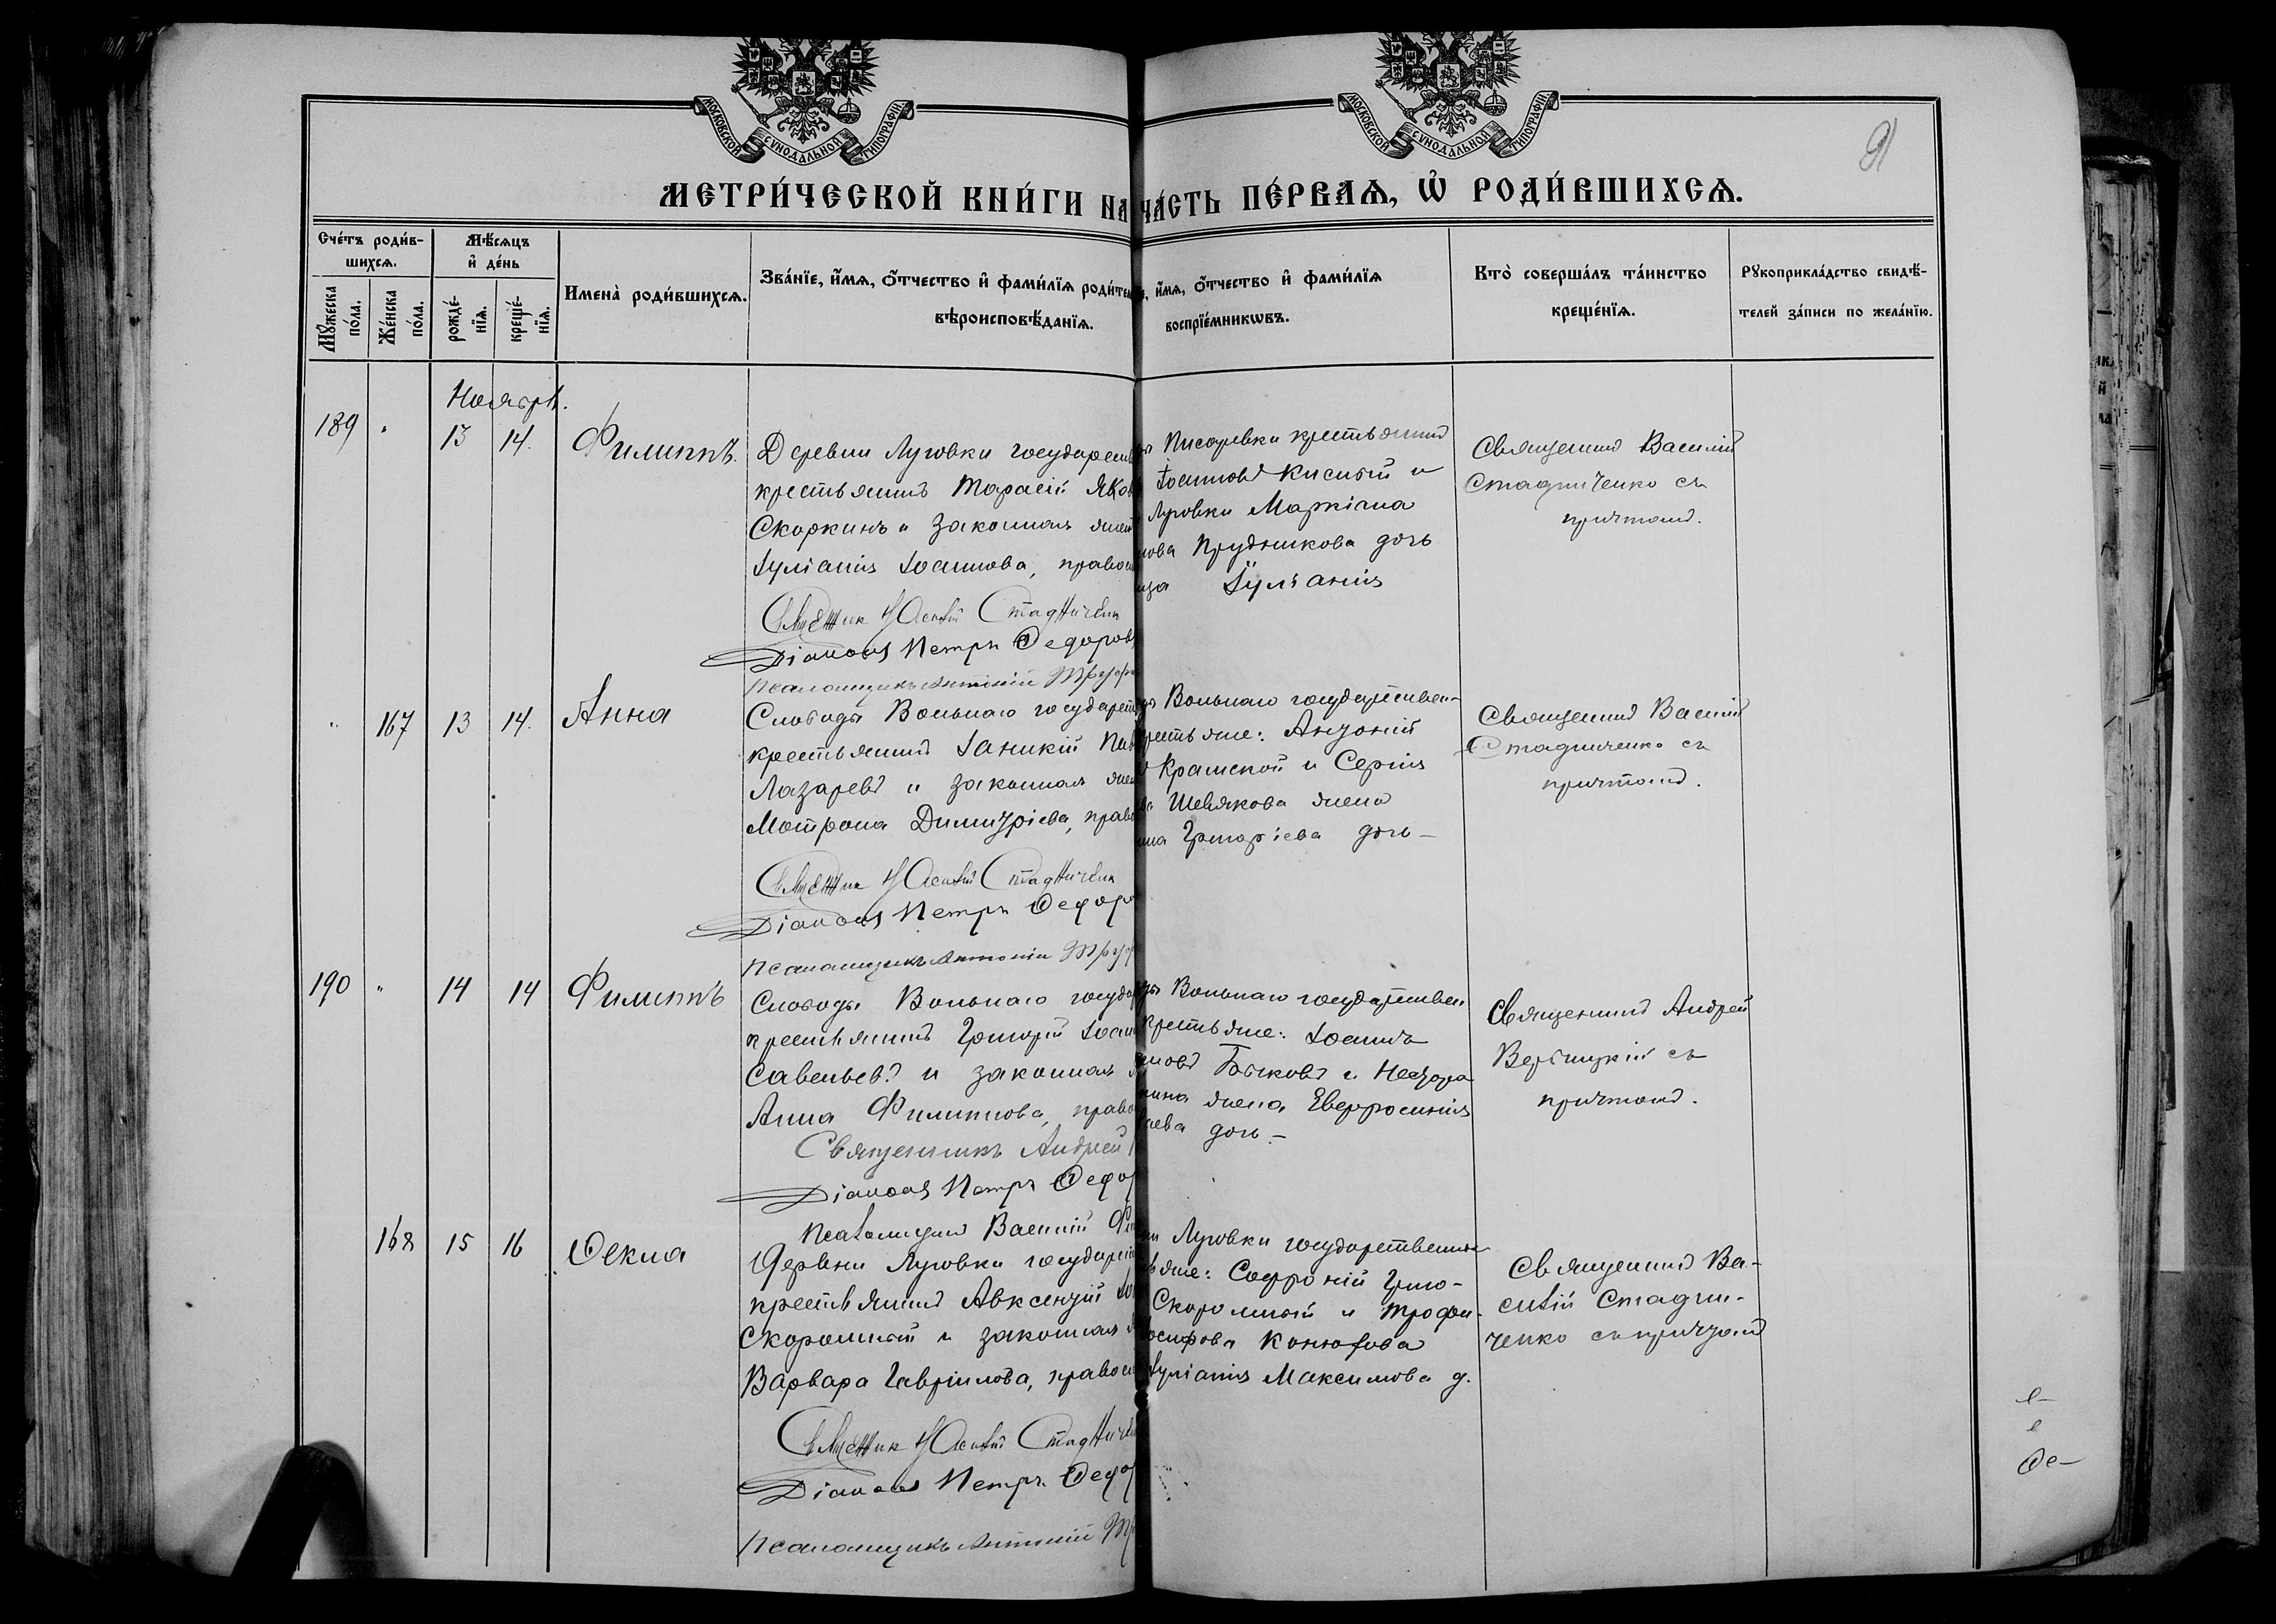 МОСКОВСКОЙ СѴНОДАЛЬНОЙ ТИПОГРАФІИ
МОСКОВСКОЙ СѴНОДАЛЬНОЙ ТИПОГРАФІИ
91
МЕТРИ́ЧЕСКОЙ КНИ́ГИ НА
ЧА́СТЬ ПЕ́РВАѦ, Ѡ҆ РОДИ́ВШИХСѦ.
Сче́тъ роди́в-
шихсѧ.
Мѣ́сѧцъ
и҆ де́нь
Мꙋ́жеска
по́ла.
Же́нска
по́ла.
рожде́-
нїѧ.
креще́-
нїѧ.
Имена̀ роди́вшихсѧ.
Зва́нїе, и҆́мѧ, о҆́тчество и҆ фами́лїѧ роди́тел
вѣроисповѣ́данїѧ.
е, и҆́мѧ, о҆́тчество и҆ фами́лїѧ
воспрїе́мникѡвъ.
Кто̀ соверша́лъ та́инство
креще́нїѧ.
Рꙋкоприкла́дство свидѣ́-
телей за́писи по жела́нїю.
Ноябрь.
189 " 13 14. Филиппъ.
Деревни Луговки государств
крестьянинъ Тарасій Яков
Скоркинъ и законная жен
Іуліанія Іоаннова, правос
Священник Василій Стадниченк
Діаконъ Петръ Ѳедоров
Псаломщикъ Антоній Труф
ы Писаревки крестьянинъ
Іоанновъ Кислый и
Луговки Маркіана
нова Прудникова дочь
ица Іуліанія
Священникъ Василій
Стадниченко съ
причтомъ.
" 167 13 14. Анна
Слободы Вольнаго государств
крестьянинъ Іаникій Пав
Лазаревъ и законная жен
Мотрона Димитріева, право
Священник Василій Стадниченк
Діаконъ Петръ Ѳедоро
Псаломщикъ Антоній Труф
ды Вольнаго государствен-
рестьяне: Антоній
Крамской и Сергія
ва Шевякова жена
ина Григоріева дочь -
Священникъ Василій
Стадниченко съ
причтомъ.
190 " 14 14 Филиппъ
Слободы Вольнаго госуда
крестьянинъ Григорій Іоан
Савельевъ и законная ж
Анна Филиппова, право
Священникъ Андрей
Діаконъ Петръ Ѳедо
Псаломщикъ Василій
ды Вольнаго государствен
крестьяне: Іоаннъ
новъ Быковъ и Нестора
жена Евфросинія
аева дочь. -
Священникъ Андрей
Вербицкій съ
причтомъ.
168 15 16 Ѳекла
Деревни Луговки государс
крестьянинъ Авксентій
Скоромный и законная ж
Варвара Гавріилова, правос
Священник Василій Стадниче
Діаконъ Петръ Ѳедо
Псаломщикъ Антоній Тр
ни Луговки государственные
ьяне: Софроній Григо-
Скоромный и Трофи-
осифова Конюхова
Іуліанія Максимова д.
Священникъ Ва-
силій Стадни-
ченко съ причтомъ